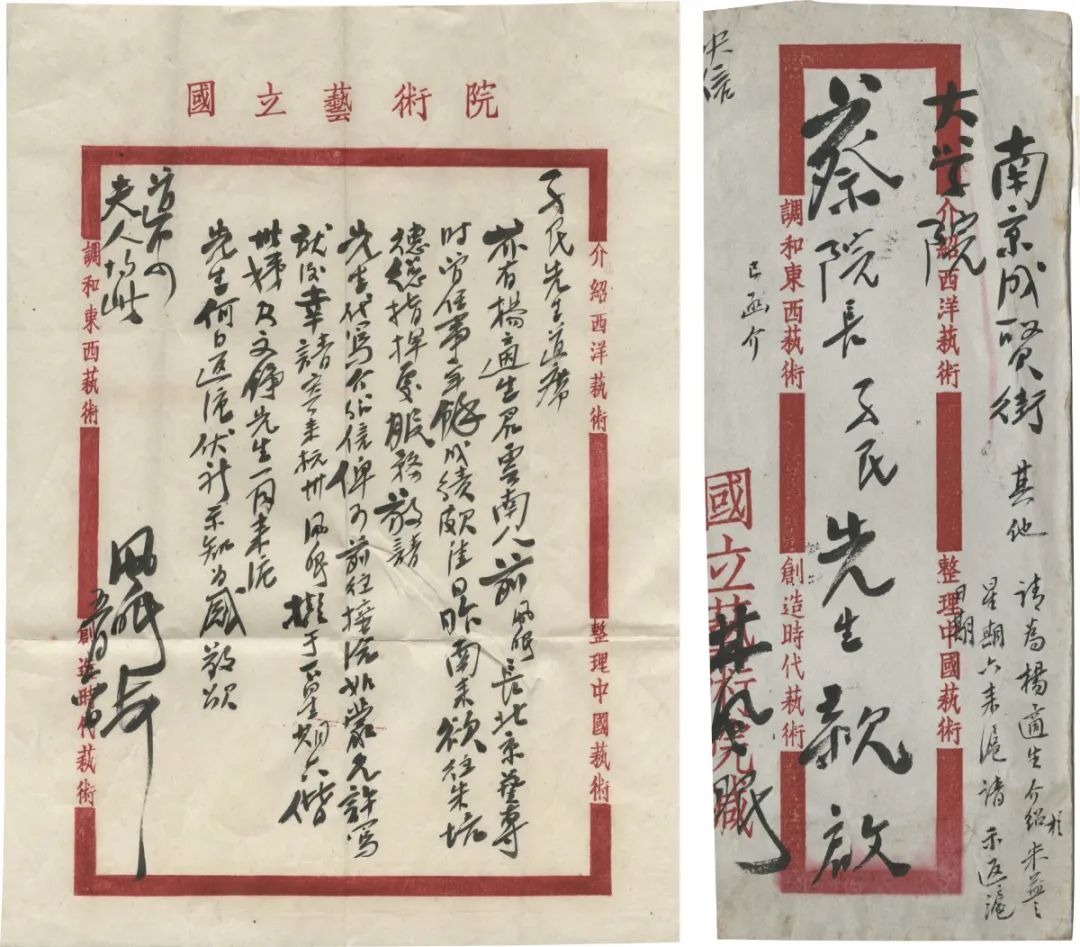 國立藝術院
介紹西洋藝術
整理中國藝術
調和東西藝術
創造時代藝術
孑民先生道席
茲有楊適生君雲南人前風眠長北京藝專
時曾任事主幹成績頗佳日昨南來欲往朱
總指揮處服務敬請
先生代寫介紹信俾可前往接洽如蒙允許寫
就後幸請寄來杭州風眠擬于下星期六偕
世姊及文錚先生一同來滬
先生何日返滬伏祈示知為感敬頌
道安
夫人均此
風眠
五月
南京成賢街
大學院
蔡院長孑民先生親啟
介紹西洋藝術
整理中國藝術
調和東西藝術
創造時代藝術
國立藝術院緘
林風眠
其他
請為楊適生介紹朱益之
於星期六來滬請示返滬
日期
已函介